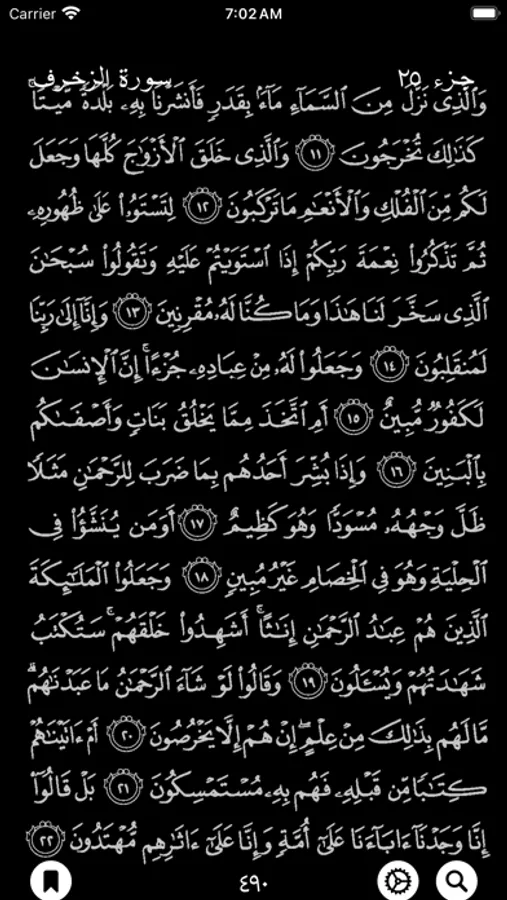 Carrier 7:02 AM
سورة الزخرف جزء ٢٥
وَٱلَّذِى نَزَّلَ مِنَ ٱلسَّمَآءِ مَآءًۢ بِقَدَرٍ فَأَنشَرْنَا بِهِۦ بَلْدَةً مَّيْتًا ۚ
كَذَٰلِكَ تُخْرَجُونَ ١١ وَٱلَّذِى خَلَقَ ٱلْأَزْوَٰجَ كُلَّهَا وَجَعَلَ
لَكُم مِّنَ ٱلْفُلْكِ وَٱلْأَنْعَٰمِ مَا تَرْكَبُونَ ١٢ لِتَسْتَوُۥا۟ عَلَىٰ ظُهُورِهِۦ
ثُمَّ تَذْكُرُوا۟ نِعْمَةَ رَبِّكُمْ إِذَا ٱسْتَوَيْتُمْ عَلَيْهِ وَتَقُولُوا۟ سُبْحَٰنَ
ٱلَّذِى سَخَّرَ لَنَا هَٰذَا وَمَا كُنَّا لَهُۥ مُقْرِنِينَ ١٣ وَإِنَّآ إِلَىٰ رَبِّنَا
لَمُنقَلِبُونَ ١٤ وَجَعَلُوا۟ لَهُۥ مِنْ عِبَادِهِۦ جُزْءًا ۚ إِنَّ ٱلْإِنسَٰنَ
لَكَفُورٌ مُّبِينٌ ١٥ أَمِ ٱتَّخَذَ مِمَّا يَخْلُقُ بَنَاتٍ وَأَصْفَىٰكُم
بِٱلْبَنِينَ ١٦ وَإِذَا بُشِّرَ أَحَدُهُم بِمَا ضَرَبَ لِلرَّحْمَٰنِ مَثَلًا
ظَلَّ وَجْهُهُۥ مُسْوَدًّا وَهُوَ كَظِيمٌ ١٧ أَوَمَن يُنَشَّؤُا۟ فِى
ٱلْحِلْيَةِ وَهُوَ فِى ٱلْخِصَامِ غَيْرُ مُبِينٍ ١٨ وَجَعَلُوا۟ ٱلْمَلَٰٓئِكَةَ
ٱلَّذِينَ هُمْ عِبَٰدُ ٱلرَّحْمَٰنِ إِنَٰثًا ۚ أَشَهِدُوا۟ خَلْقَهُمْ ۚ سَتُكْتَبُ
شَهَٰدَتُهُمْ وَيُسْـَٔلُونَ ١٩ وَقَالُوا۟ لَوْ شَآءَ ٱلرَّحْمَٰنُ مَا عَبَدْنَٰهُم ۗ
مَّا لَهُم بِذَٰلِكَ مِنْ عِلْمٍ ۖ إِنْ هُمْ إِلَّا يَخْرُصُونَ ٢٠ أَمْ ءَاتَيْنَٰهُمْ
كِتَٰبًا مِّن قَبْلِهِۦ فَهُم بِهِۦ مُسْتَمْسِكُونَ ٢١ بَلْ قَالُوٓا۟
إِنَّا وَجَدْنَآ ءَابَآءَنَا عَلَىٰٓ أُمَّةٍ وَإِنَّا عَلَىٰٓ ءَاثَٰرِهِم مُّهْتَدُونَ ٢٢
٤٩٠